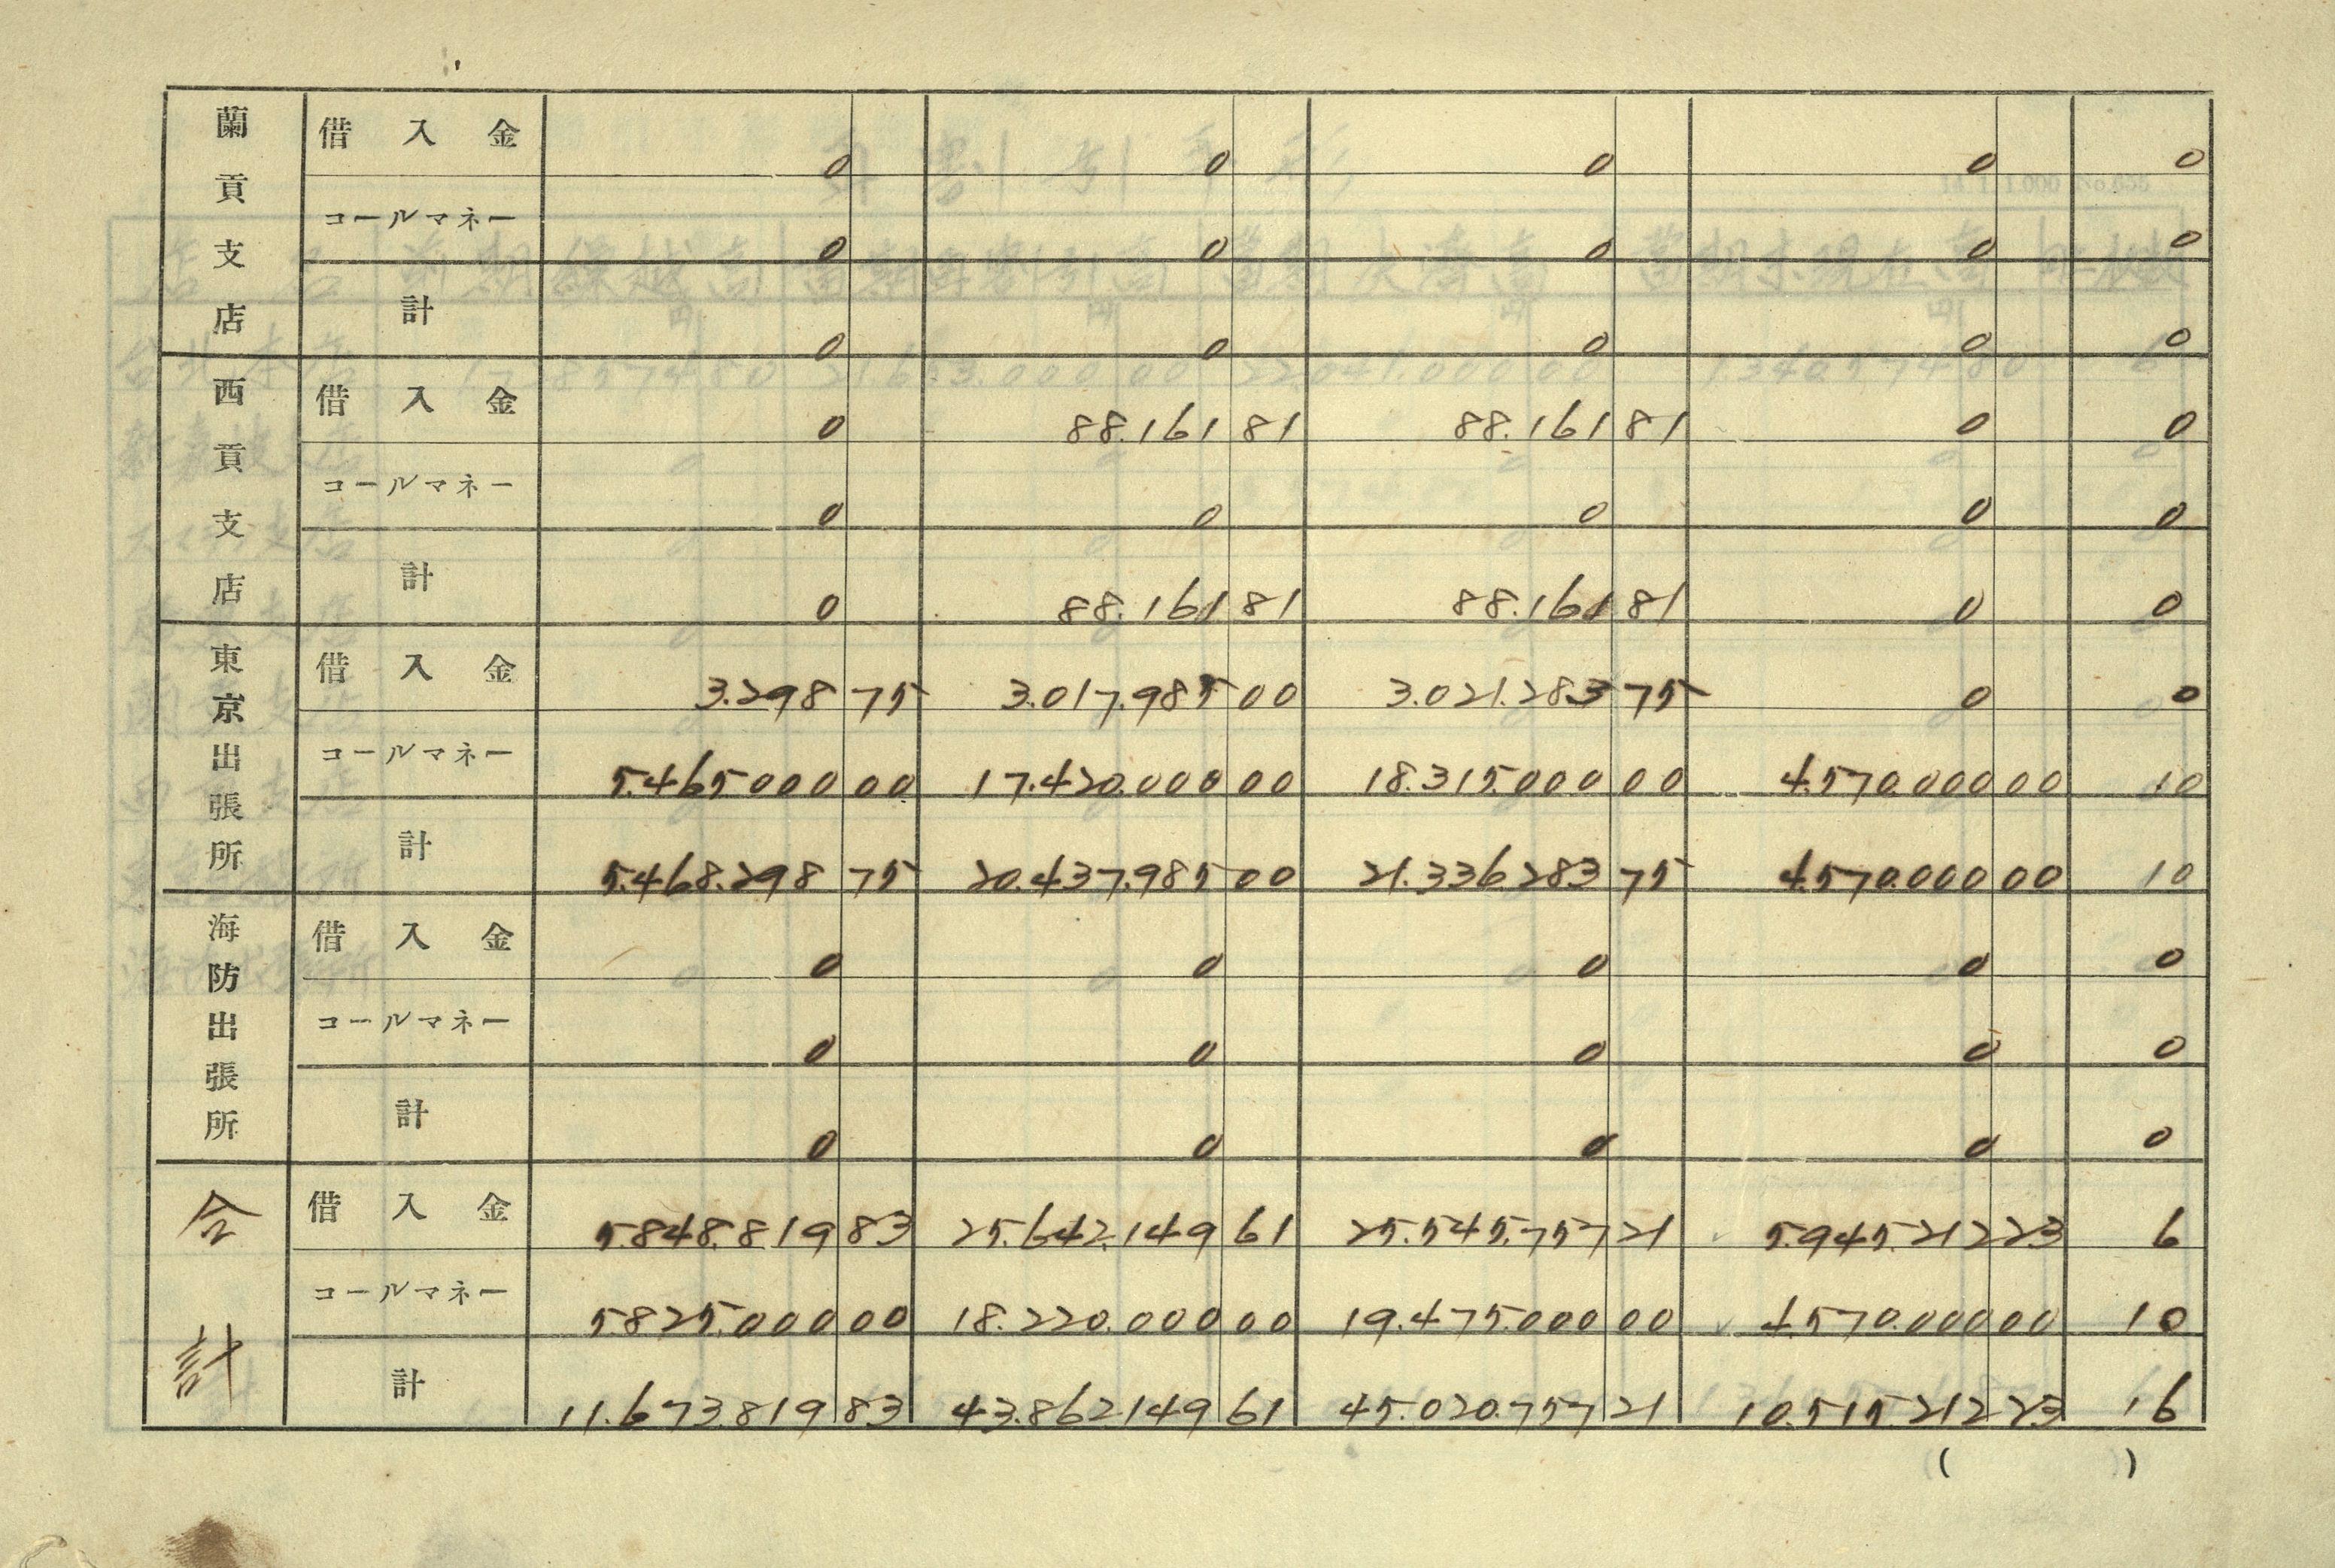 蘭貢支店 借入金 0 0 0 0 0
コールマネー 0 0 0 0 0
計 0 0 0 0 0
西貢支店 借入金 0 88.161 81 88.161 81 0 0
コールマネー 0 0 0 0 0
計 0 88.161 81 88.161 81 0 0
東京出張所 借入金 3.298 75 3.017.985 00 3.021.283 75 0 0
コールマネー 5.465.000 00 17.420.000 00 18.315.000 00 4.570.000 00 10
計 5.468.298 75 20.437.985 00 21.336.283 75 4.570.000 00 10
海防出張所 借入金 0 0 0 0 0
コールマネー 0 0 0 0 0
計 0 0 0 0 0
合計 借入金 5.848.819 83 25.642.149 61 25.545.757 21 5.945.212 23 6
コールマネー 5.825.000 00 18.220.000 00 19.475.000 00 4.570.000 00 10
計 11.673.819 83 43.862.149 61 45.020.757 21 10.515.212 23 16
( )